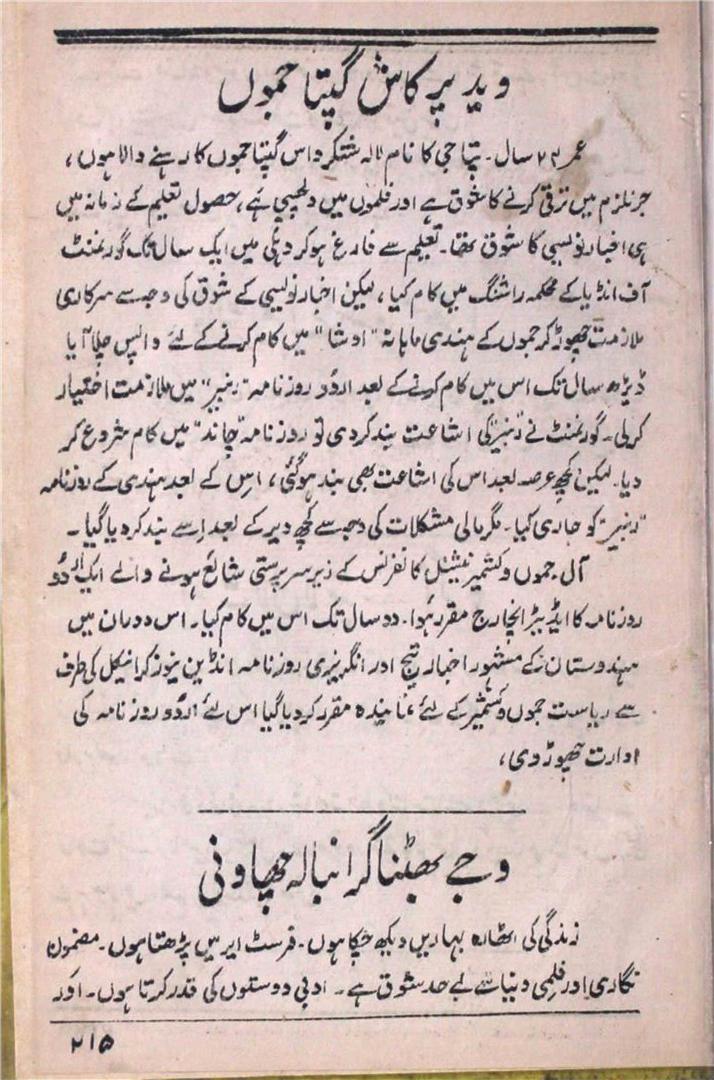 وید پرکاش گپتا جموں
عمر ۲۳ سال۔ پتا جی کا نام لالہ شنکر داس گپتا جموں کا رہنے والا ہوں،
جرنلزم میں ترقی کرنے کا شوق ہے اور فلموں میں دلچسپی ہے، حصول تعلیم کے زمانہ میں
ہی اخبار نویسی کا شوق تھا۔ تعلیم سے فارغ ہو کر دہلی میں ایک سال تک گورنمنٹ
آف انڈیا کے محکمہ راشننگ میں کام کیا، لیکن اخبار نویسی کے شوق کی وجہ سے سرکاری
ملازمت چھوڑ کر جموں کے ہندی ماہانہ "اوشا" میں کام کرنے کے لئے واپس چلا آیا
ڈیڑھ سال تک اس میں کام کرنے کے بعد اردو روزنامہ "رنبیر" میں ملازمت اختیار
کر لی۔ گورنمنٹ نے رنبیر کی اشاعت بند کر دی تو روزنامہ "چاند" میں کام شروع کر
دیا۔ لیکن کچھ عرصہ بعد اس کی اشاعت بھی بند ہو گئی، اس کے بعد ہندی کے روزنامہ
"رنبیر" کو جاری کیا۔ مگر مالی مشکلات کی وجہ سے کچھ دیر کے بعد اسے بند کر دیا گیا۔
آل جموں و کشمیر نیشنل کانفرنس کے زیر سرپرستی شائع ہونے والے ایک اُردُو
روزنامہ کا ایڈیٹر انچارج مقرر ہُوا۔ دو سال تک اس میں کام کیا۔ اس دوران میں
ہندوستان کے مشہور اخبار تیج اور انگریزی روزنامہ انڈین نیوز کرانیکل کی طرف
سے ریاست جموں و کشمیر کے لئے نمایندہ مقرر کر دیا گیا اس لئے اُردُو روزنامہ کی
ادارت چھوڑ دی،
وجے بھٹناگر انبالہ چھاونی
زندگی کی اٹھارہ بہاریں دیکھ چکا ہوں۔ فرسٹ ایر میں پڑھتا ہوں۔ مضمون
نگاری اور فلمی دنیا سے بے حد شوق ہے۔ ادبی دوستوں کی قدر کرتا ہوں۔ اور
۲۱۵